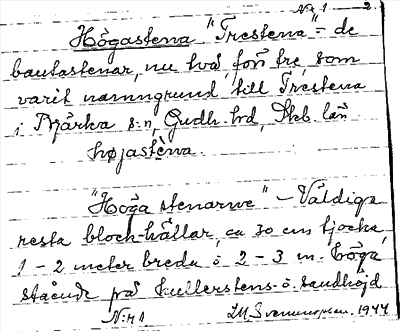 No 1 — 2.
Högastena "Trestena" = de
bautastenar, nu två, förr tre, som
varit namngrund till Trestena
i Bjärka s:n, Gudh. hrd, Skb. län
højastèna.
"Höga stenarne" – Väldiga
resta block-hällar, ca 30 cm tjocka
1 – 2 meter breda o 2 – 3 m. höga,
stående på kullerstens- o. sandhöjd
No 1 1944